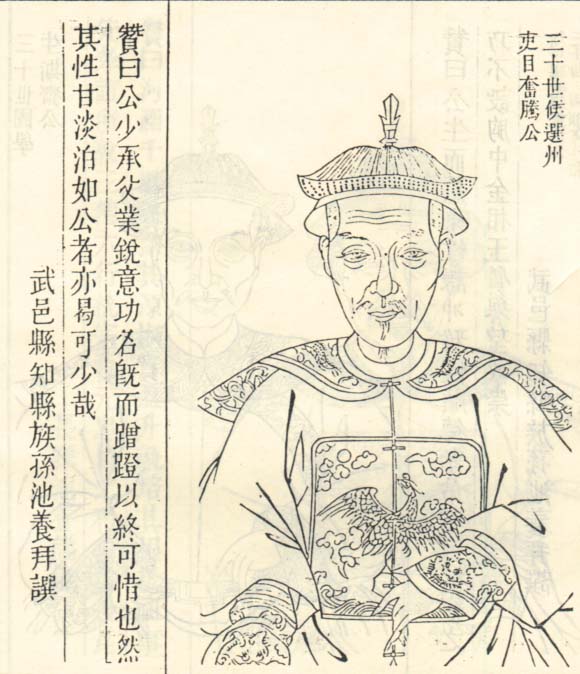 三十世候選州
吏目奮騰公
贊曰公少承父業銳意功名旣而蹭蹬以終可惜也然
其性甘淡泊如公者亦曷可少哉
武邑縣知縣族孫池養拜譔